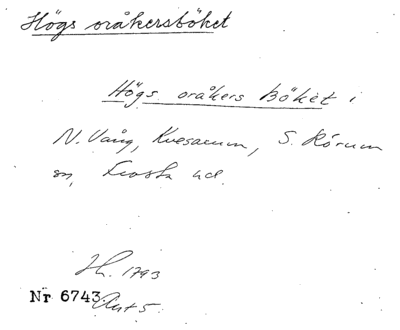 Högs oråkersböket
Högs oråkers böket i
N. Vång, Kvesarum, S. Rörum
sn, Frosta hd.
Hs. 1793
Nr 6743. Akt 5.